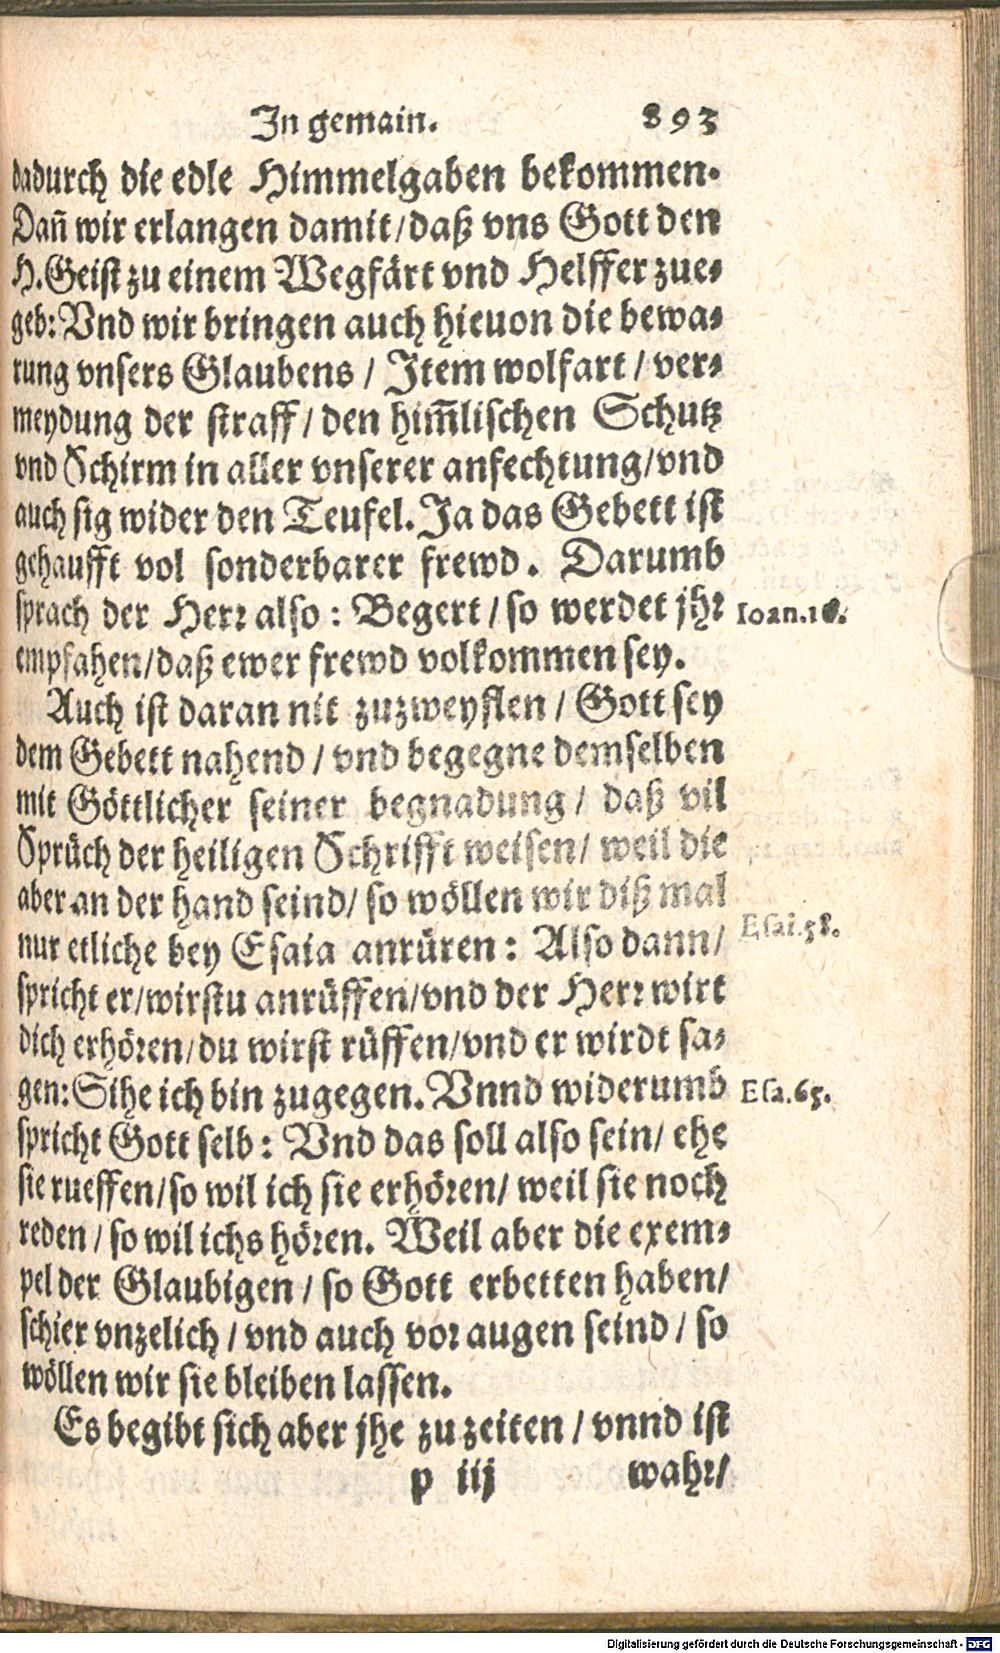 In gemain. 893
dadurch die edle Himmelgaben bekommen.
Dañ wir erlangen damit/daß vns Gott den
H. Geist zu einem Wegfärt vnd Helffer zue⸗
geb: Vnd wir bringen auch hieuon die bewa⸗
rung vnsers Glaubens / Item wolfart / ver⸗
meydung der straff/ den him̃lischen Schutz
vnd Schirm in aller vnserer anfechtung/vnd
auch sig wider den Teufel. Ja das Gebett ist
gehaufft vol sonderbarer frewd. Darumb
sprach der Herr also: Begert / so werdet jhr Ioan.16.
empfahen/daß ewer frewd volkommen sey.
Auch ist daran nit zuzweyflen / Gott sey
dem Gebett nahend / vnd begegne demselben
mit Göttlicher seiner begnadung / daß vil
Sprüch der heiligen Schrifft weisen/ weil die
aber an der hand seind/ so wöllen wir diß mal
nur etliche bey Esaia anrüren: Also dann/ Esai.58.
spricht er/wirstu anrüffen/vnd der Herr wirt
dich erhören/du wirst rüffen/vnd er wirdt sa⸗
gen: Sihe ich bin zugegen. Vnnd widerumb Esa.65.
spricht Gott selb: Vnd das soll also sein/ ehe
sie rueffen/so wil ich sie erhören/ weil sie noch
reden / so wil ichs hören. Weil aber die exem⸗
pel der Glaubigen / so Gott erbetten haben/
schier vnzelich / vnd auch vor augen seind / so
wöllen wir sie bleiben lassen.
Es begibt sich aber jhe zu zeiten / vnnd ist
p iij wahr/
Digitalisierung gefördert durch die Deutsche Forschungsgemeinschaft - DFG